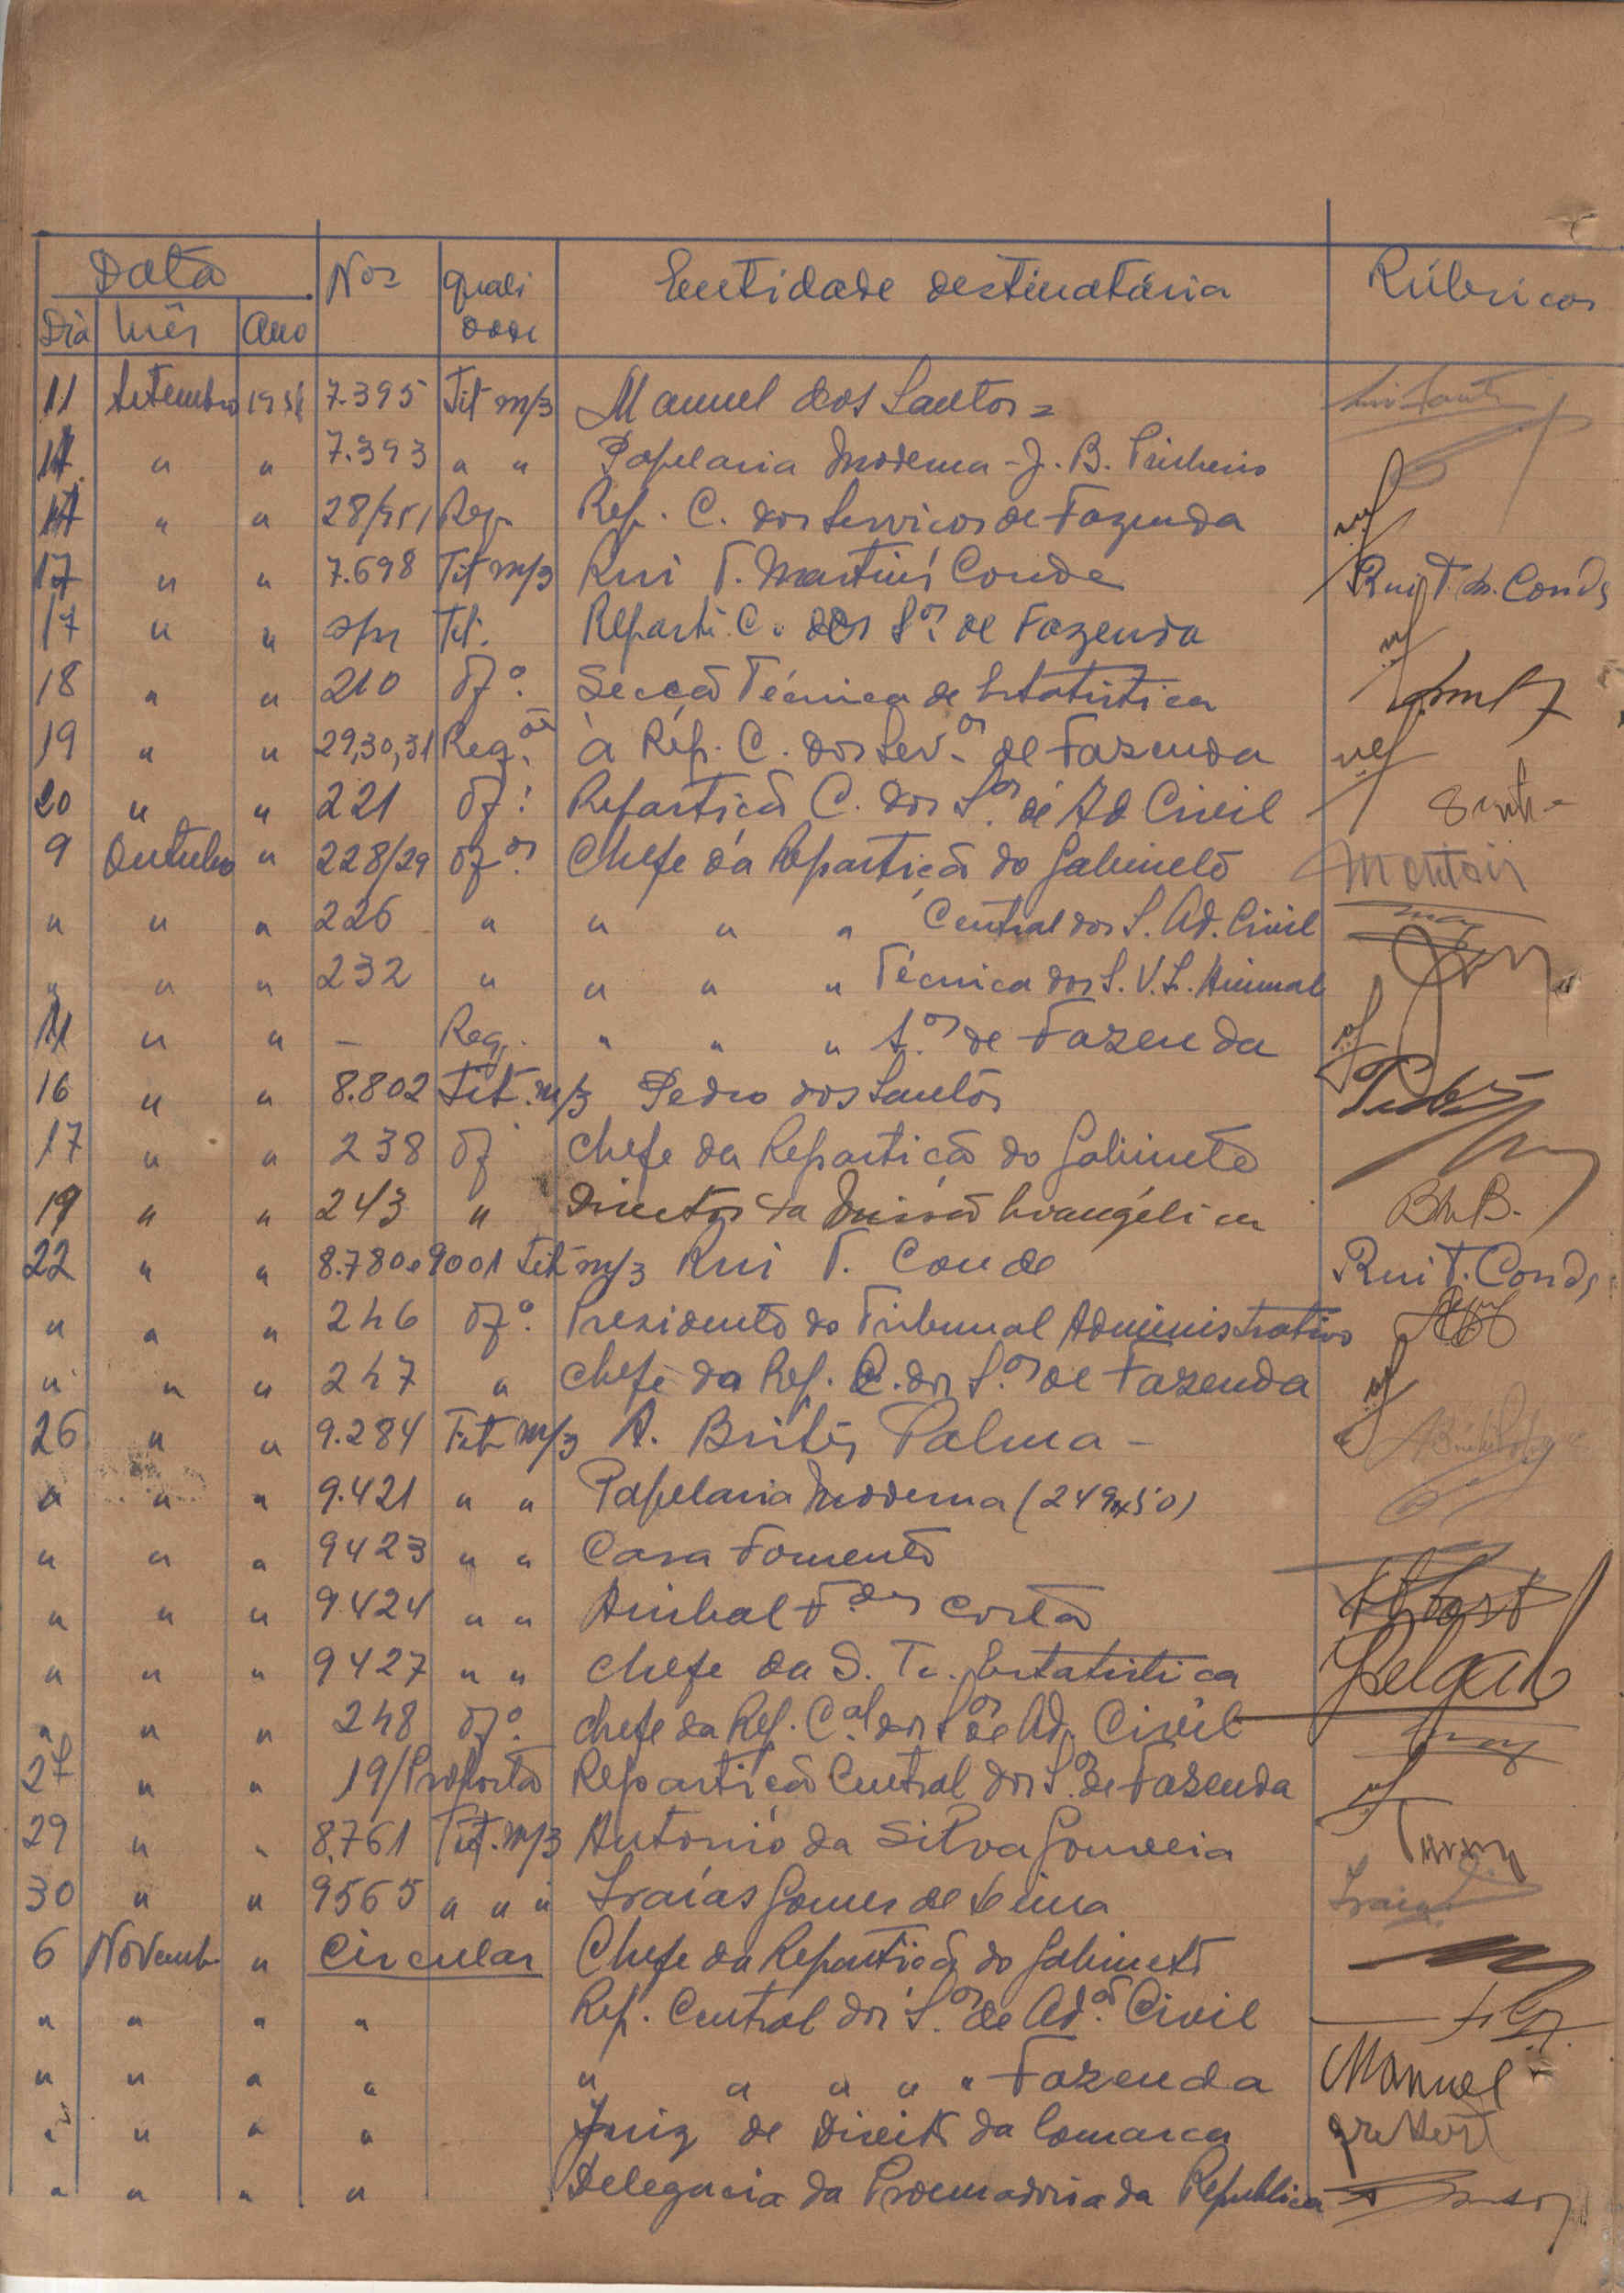 Data Nos Quali Entidade destinatária Rúbricas
Dia Mês Ano dade
11 Setembro 1951 7.395 Tit m/3 Manuel dos Santos =
" " 7.393 " " Papelaria Moderna - J. B.
" " 28/951 Req. Rep. C. dos Serviços de Fazenda
17 " " 7.698 Tit m/3 Rui T. Martins Conde Rui T. M. Conde
17 " " Tit. Reparti. C. dos S.os de Fazenda
18 " " 210 Of.º Secção Técnica de Estatistica
19 " " 29,30,31 Req.ões à Rep. C. dos Serv.os de Fazenda
20 " " 221 Of.º Repartição C. dos S.os de Ad Civil
9 Outubro " 228/29 Of.os Chefe da Repartição do Gabinete
" " " 226 " " " " Central dos S. Ad. Civil
" " " 232 " " " " Técnica dos S. V. S. Animal
11 " " — Req. " " " S.os de Fazenda
16 " " 8.802 Tit. m/3 Pedro dos Santos
17 " " 238 Of Chefe da Repartição do Gabinete
19 " " 243 " Director da Missão Evangélica
22 " " 8.780 e 9001 Tit m/3 Rui T. Conde Rui T. Conde
" " " 246 Of.º Presidente do Tribunal Administrativo
" " " 247 " Chefe da Rep. C. dos S.os de Fazenda
26 " " 9.284 Tit m/3 A. Brites Palma -
" " " 9.421 " " Papelaria Moderna (249x50)
" " " 9423 " " Casa Fomento
" " " 9.424 " " Anibal F.des Costa
" " " 9427 " " Chefe da S. Te. Estatistica
" " " 248 Of.º Chefe da Rep. C.al dos S.os de Ad. Civil
27 " " 19/Proposta Repartição Central dos S.os de Fazenda
29 " " 8.761 Tit. m/3 António da Silva Gouveia
30 " " 9565 " " " Isaías Gomes de Lima
6 Novemb. " Circular Chefe da Repartição do Gabinete
" " " " Rep. Central dos S.os de Ad.ão Civil
" " " " " " " " " Fazenda Manuel
" " " " Juiz de Direito da Comarca
" " " " Delegacia da Procuradoria da Republica